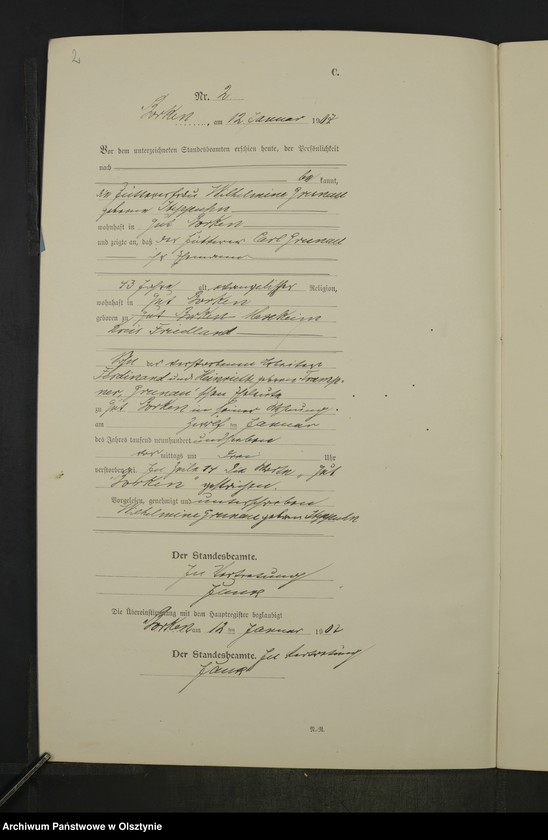 2
C.
Nr. 2
Borken, am 12 Januar 1907
Vor dem unterzeichneten Standesbeamten erschien heute, der Persönlichkeit
nach
be kannt,
die Futterersfrau Wilhelmine Grunau
geborene
wohnhaft in Gut Borken
und zeigte an, daß der Fütterer Carl Grunau
ihr Ehemann
43 Jahre alt, evangelischer Religion,
wohnhaft in Gut Borken
geboren zu Gut Borken
Kreis Friedland
Sohn der verstorbenen Arbeiter
Ferdinand und geborene
Grunau'schen Eheleute
zu Gut Borken in seiner Wohnung
am zwölf ten Januar
des Jahres tausend neunhundert und sieben
mittags um drei Uhr
verstorben sei. In Zeile 14 die Worte "Gut
Borken" gestrichen.
Vorgelesen, genehmigt und unterschrieben
Wilhelmine Grunau geborene
Der Standesbeamte.
In Vertretung
Die Übereinstimmung mit dem Hauptregister beglaubigt
Borken am 12 ten Januar 1907
Der Standesbeamte. In Vertretung
N.-R.
Archiwum Państwowe w Olsztynie